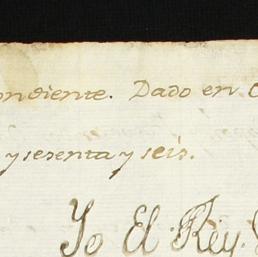 ondiente. Dado en
y sesenta y seis.
Yo El Rey.